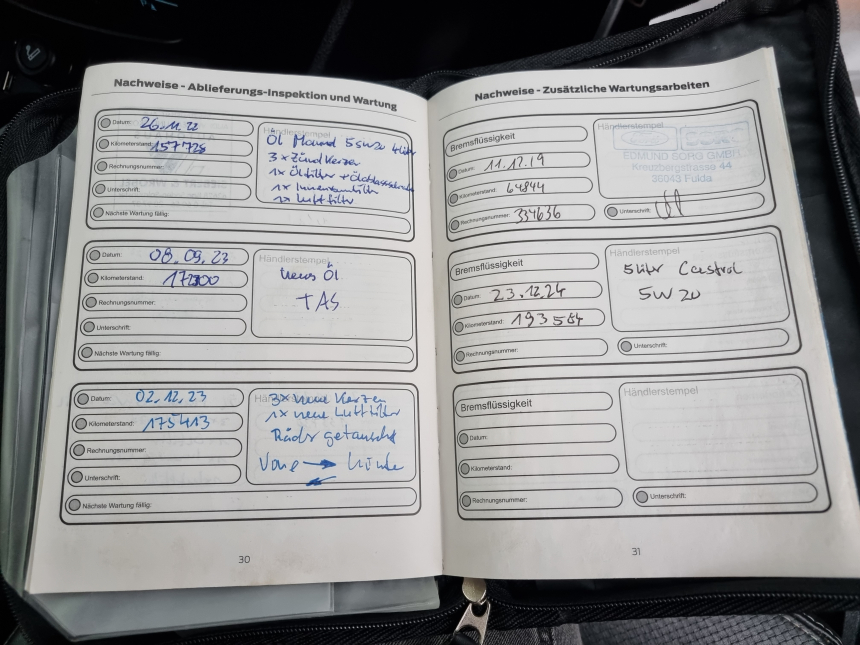 Nachweise - Ablieferungs-Inspektion und Wartung
Datum: 26.11.22
Kilometerstand: 157728
Rechnungsnummer:
Unterschrift:
Nächste Wartung fällig:
Händlerstempel
Öl 5W20 4 Liter
3x Zündkerzen
1x Ölfilter +
1x Innenraumfilter
1x Luftfilter
Datum: 08.09.23
Kilometerstand:
Rechnungsnummer:
Unterschrift:
Nächste Wartung fällig:
Händlerstempel
neues Öl
+ AS
Datum: 02.12.23
Kilometerstand: 175413
Rechnungsnummer:
Unterschrift:
Nächste Wartung fällig:
3x neue Kerzen
1x neue Luftfilter
Räder getauscht
30
Nachweise - Zusätzliche Wartungsarbeiten
Bremsflüssigkeit
Datum: 11.12.19
Kilometerstand: 64844
Rechnungsnummer: 334636
Händlerstempel
EDMUND SORG GMBH
Kreuzbergstrasse 44
36043 Fulda
Unterschrift:
Bremsflüssigkeit
Datum: 23.12.24
Kilometerstand: 193564
Rechnungsnummer:
Händlerstempel
5 liter Castrol
5W20
Unterschrift:
Bremsflüssigkeit
Datum:
Kilometerstand:
Rechnungsnummer:
Händlerstempel
Unterschrift:
31